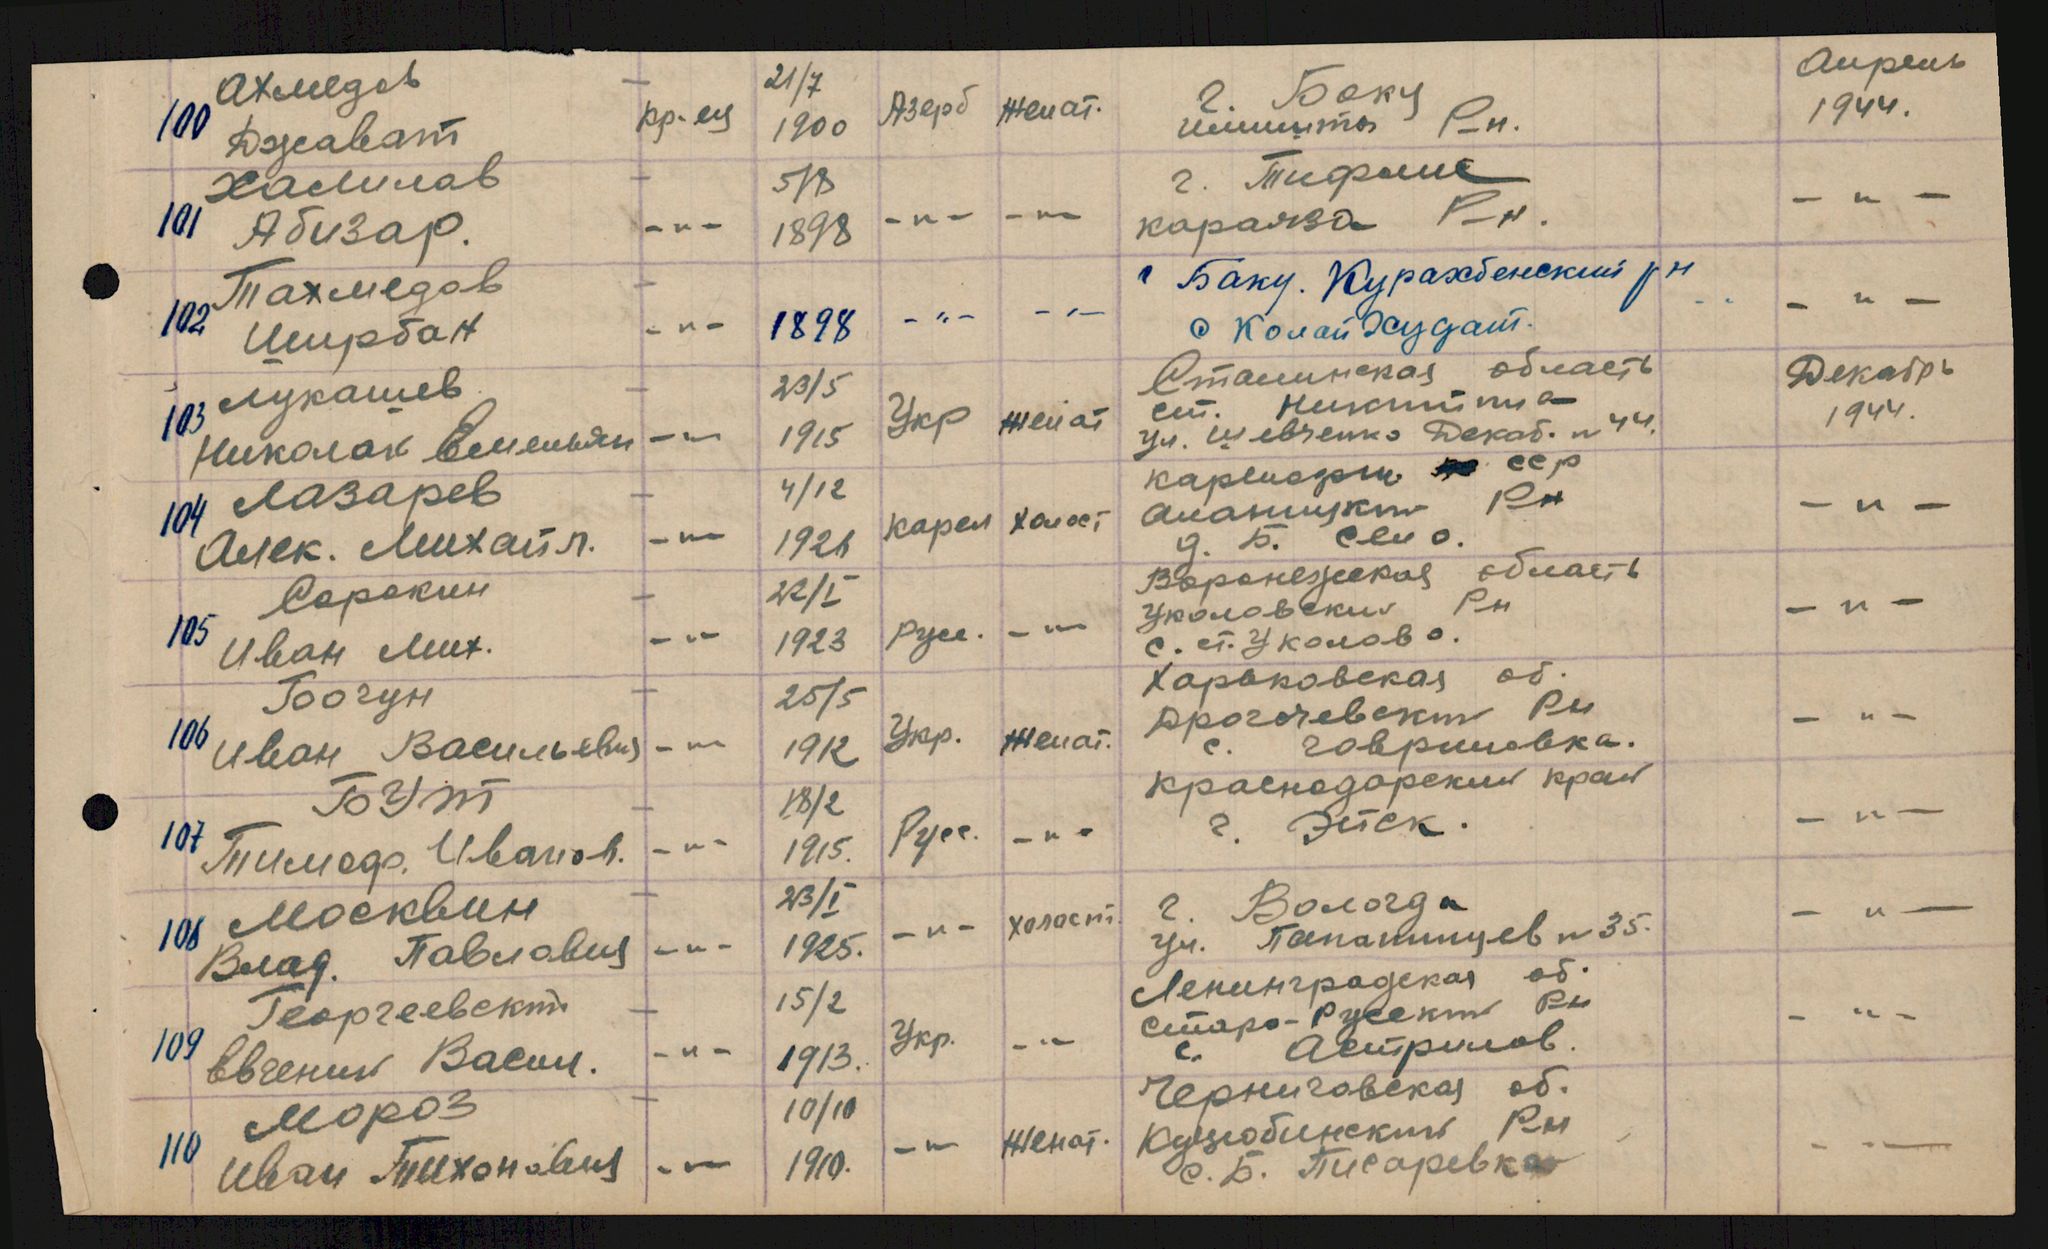 Ахмедов — 21/7 Апрель
100 кр-ец Азерб Женат. г. Баку 1944.
Джават 1900 Р-н.
Хамилов — 5/8 г. Тифлис
101 -"- -"- -"- -"-
Абизар. 1898 караяза Р-н.
Тахмедов — г Баку. Курахбенский рн
102 -"- 1898 -"- -"- -"-
Ширбан с Колай Худат.
Лукашев — 23/5 Сталинская область Декабрь
103 Укр Женат ст. Никитина 1944.
Николай Емельян -"- 1915 ул. Шевченко Декаб. № 44.
Лазарев — 4/12 сср
104 карел холост Р-н -"-
Алек. Михайл. -"- 1921 д. Б. Село.
Сорокин — 22/I Воронежская область
105 Русс. -"- Уколовский Рн -"-
Иван Мих. -"- 1923 с. ст. Уколово.
Богун — 25/5 Харьковская об.
106 Укр. Женат. Рн -"-
Иван Васильевич -"- 1912 с. Гавриловка.
Боут — 18/2 Краснодарский край
107 Русс. -"- г. Эйск. -"-
Тимоф. Иванов. -"- 1915.
Москвин — 23/I г. Вологда
108 -"- холост. -"-
Влад. Павлович -"- 1925. ул. Папанинцев № 35.
Георгеевский — 15/2 Ленинградская об.
109 Укр. -"- Старо-Русский Рн -"-
Евгений Васил. -"- 1913. с. Астрилов.
Мороз — 10/10 Черниговская об.
110 -"- Женат. Куцюбинский Р-н -"-
Иван Тихонович -"- 1910. с. Б. Писаревка